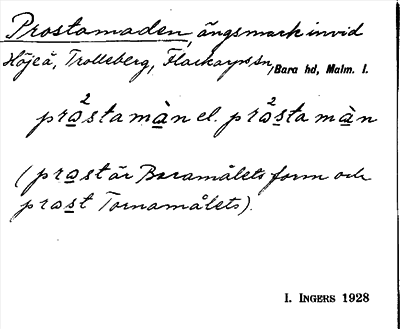 Prostamaden, ängsmark invid
Höjeå, Trolleberg, Flackarps sn, Bara hd, Malm. l.
pra²stamàn el. pra²stamàn
(prast är Baramålets form och
prast Tornamålets).
I. INGERS 1928